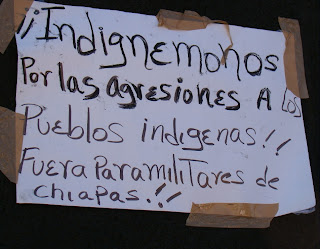 ¡Indignemonos
Por las agresiones A los
Pueblos indigenas!!
Fuera Paramilitares de
chiapas.!!